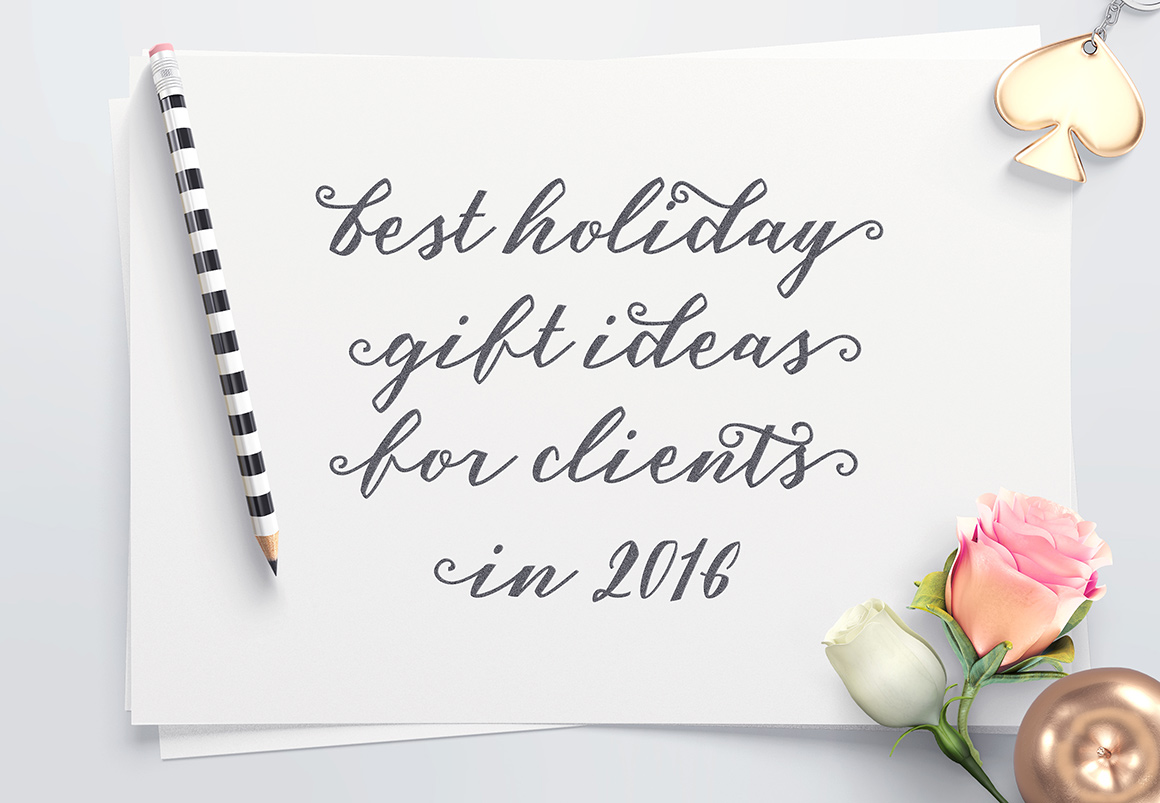 best holiday
gift ideas
for clients
in 2016